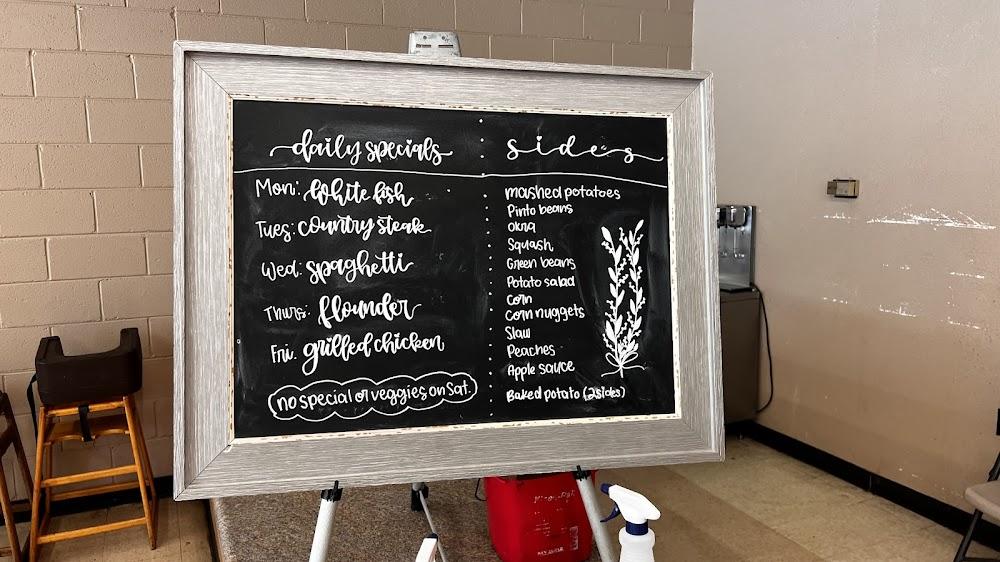 daily specials
Mon: White fish
Tues: country steak
Wed: spaghetti
Thurs: flounder
Fri: grilled chicken
no special or veggies on Sat.
sides
mashed potatoes
Pinto beans
okra
Squash
Green beans
Potato salad
Corn
Corn nuggets
Slaw
Peaches
Apple sauce
Baked potato (2 sides)